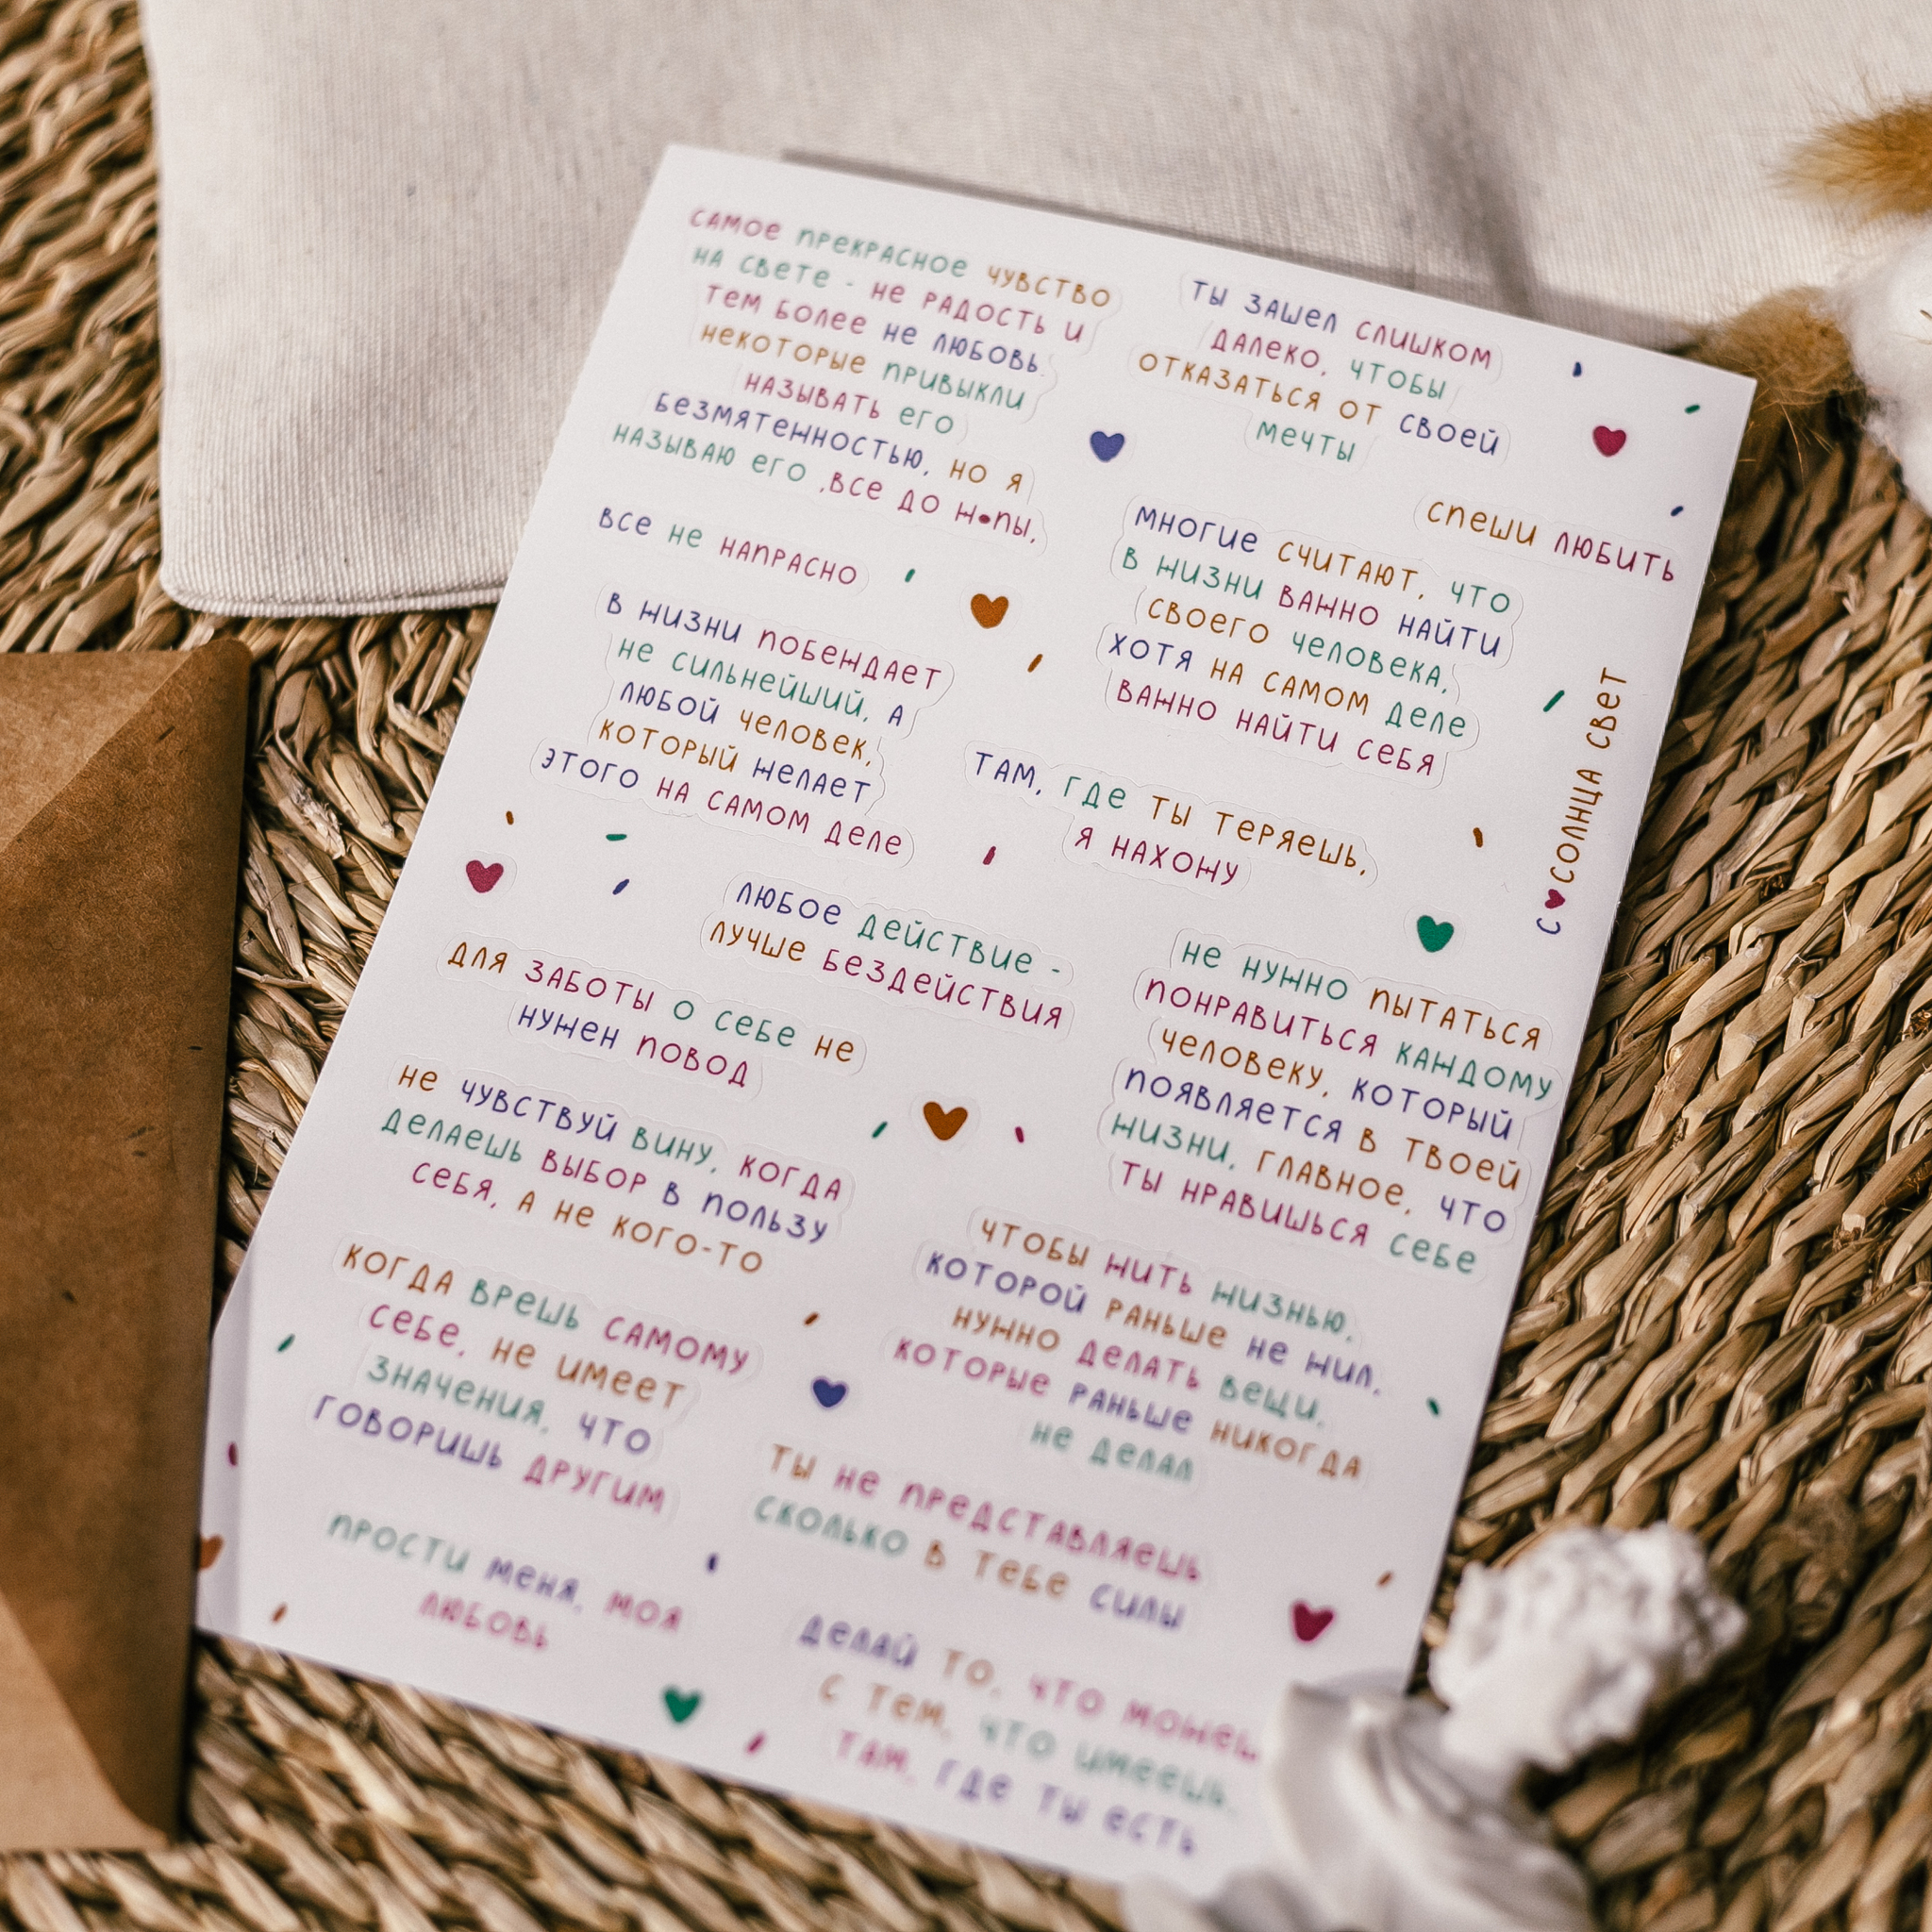 САМОЕ ПРЕКРАСНОЕ ЧУВСТВО
НА СВЕТЕ - НЕ РАДОСТЬ И
ТЕМ БОЛЕЕ НЕ ЛЮБОВЬ.
НЕКОТОРЫЕ ПРИВЫКЛИ
НАЗЫВАТЬ ЕГО
БЕЗМЯТЕЖНОСТЬЮ, НО Я
НАЗЫВАЮ ЕГО ,ВСЕ ДО Ж•ПЫ,
ВСЕ НЕ НАПРАСНО
В ЖИЗНИ ПОБЕЖДАЕТ
НЕ СИЛЬНЕЙШИЙ, А
ЛЮБОЙ ЧЕЛОВЕК,
КОТОРЫЙ ЖЕЛАЕТ
ЭТОГО НА САМОМ ДЕЛЕ
ЛЮБОЕ ДЕЙСТВИЕ -
ЛУЧШЕ БЕЗДЕЙСТВИЯ
ДЛЯ ЗАБОТЫ О СЕБЕ НЕ
НУЖЕН ПОВОД
НЕ ЧУВСТВУЙ ВИНУ, КОГДА
ДЕЛАЕШЬ ВЫБОР В ПОЛЬЗУ
СЕБЯ, А НЕ КОГО-ТО
КОГДА ВРЕШЬ САМОМУ
СЕБЕ, НЕ ИМЕЕТ
ЗНАЧЕНИЯ, ЧТО
ГОВОРИШЬ ДРУГИМ
ПРОСТИ МЕНЯ, МОЯ
ЛЮБОВЬ
ТЫ ЗАШЕЛ СЛИШКОМ
ДАЛЕКО, ЧТОБЫ
ОТКАЗАТЬСЯ ОТ СВОЕЙ
МЕЧТЫ
СПЕШИ ЛЮБИТЬ
МНОГИЕ СЧИТАЮТ, ЧТО
В ЖИЗНИ ВАЖНО НАЙТИ
СВОЕГО ЧЕЛОВЕКА,
ХОТЯ НА САМОМ ДЕЛЕ
ВАЖНО НАЙТИ СЕБЯ
С ♥ СОЛНЦА СВЕТ
ТАМ, ГДЕ ТЫ ТЕРЯЕШЬ,
Я НАХОЖУ
НЕ НУЖНО ПЫТАТЬСЯ
ПОНРАВИТЬСЯ КАЖДОМУ
ЧЕЛОВЕКУ, КОТОРЫЙ
ПОЯВЛЯЕТСЯ В ТВОЕЙ
ЖИЗНИ, ГЛАВНОЕ, ЧТО
ТЫ НРАВИШЬСЯ СЕБЕ
ЧТОБЫ ЖИТЬ ЖИЗНЬЮ,
КОТОРОЙ РАНЬШЕ НЕ ЖИЛ,
НУЖНО ДЕЛАТЬ ВЕЩИ,
КОТОРЫЕ РАНЬШЕ НИКОГДА
НЕ ДЕЛАЛ
ТЫ НЕ ПРЕДСТАВЛЯЕШЬ
СКОЛЬКО В ТЕБЕ СИЛЫ
ДЕЛАЙ ТО, ЧТО МОЖЕШЬ
С ТЕМ, ЧТО ИМЕЕШЬ,
ТАМ, ГДЕ ТЫ ЕСТЬ